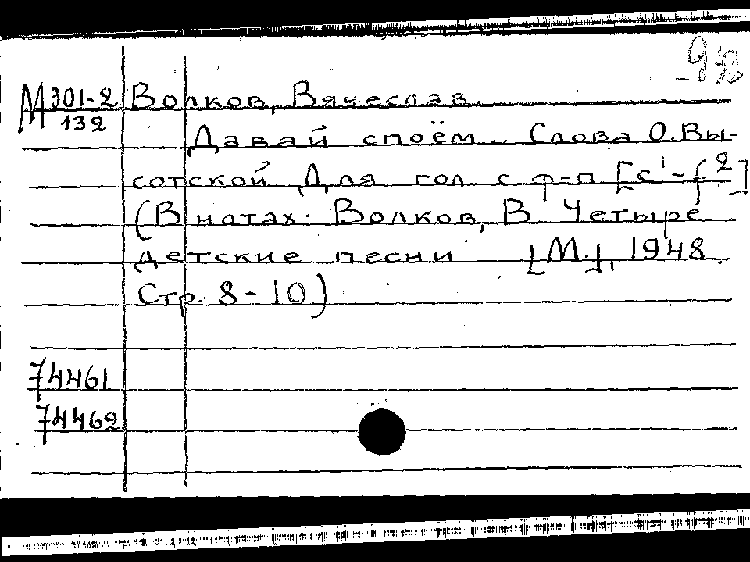 М 301-2 Волков, Вячеслав
132
Давай споём. Слова О. Вы-
сотской. Для гол. с ф-п. [c¹-f²]
(В нотах: Волков, В. Четыре
детские песни. [М.], 1948.
Стр. 8-10)
74461
74462